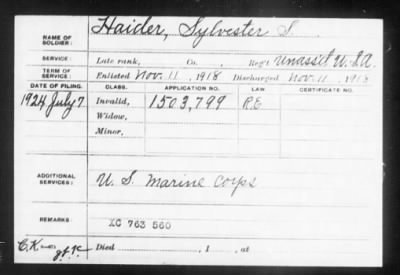 NAME OF SOLDIER: Haider, Sylvester S.
SERVICE: Late rank, Co. , Reg't Unasid U.S.A.
TERM OF SERVICE: Enlisted Nov. 11, 1918 Discharged Nov. 11, 1918
DATE OF FILING. CLASS. APPLICATION NO. LAW CERTIFICATE NO.
1924 July 7 Invalid, 1503,799 R.E
Widow,
Minor,
ADDITIONAL SERVICES: U. S. Marine Corps
REMARKS: XC 763 560
Died , 1 , at